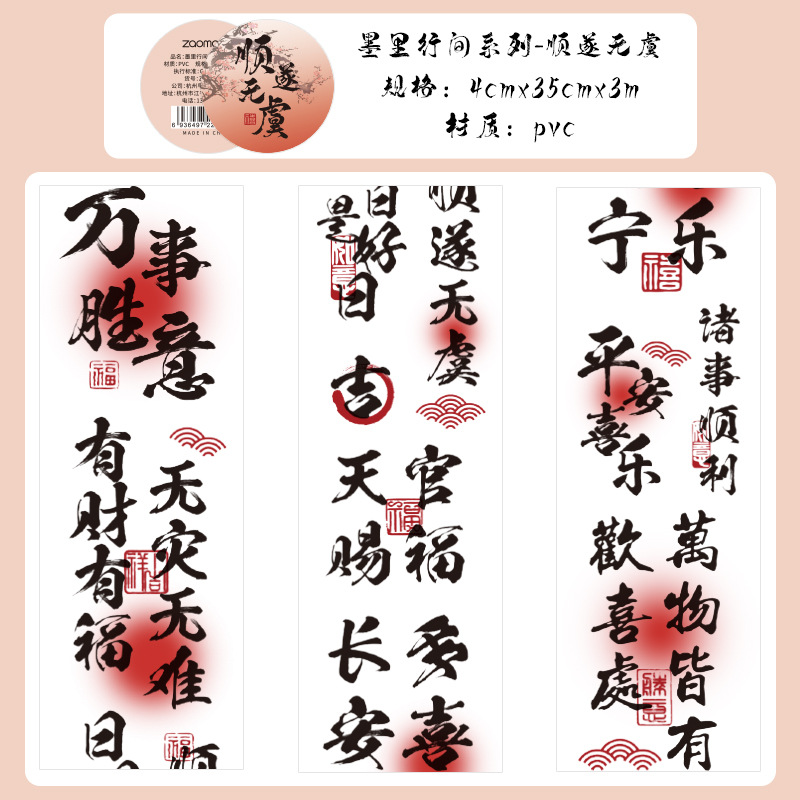 zaomo
品名:墨里行间
材质:PVC 规格
执行标准:
货号:2
公司:杭州
地址:杭州市江
电话:13
6 936497 22
MADE IN CH
顺遂
无虞
墨里行间系列-顺遂无虞
规格：4cmx35cmx3m
材质：pvc
万事
胜意
福
有财有福
无灾无难
日
福
顺
日好
是日
顺遂无虞
吉
天官
赐福
福
长安
多喜
乐
宁
禧
平安
喜乐
诸事顺利
萬物皆有
歡喜處